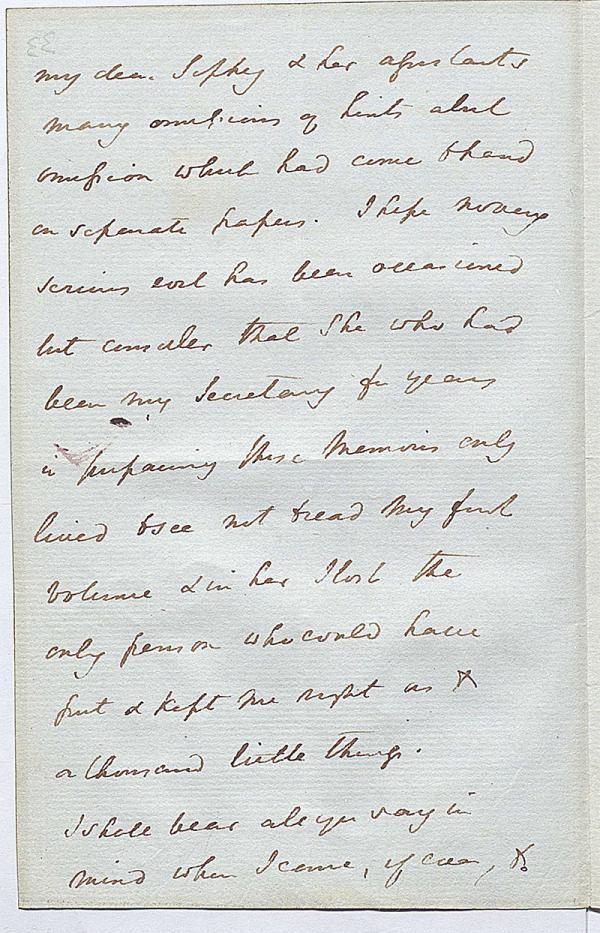 33
my dear Sophy & her assistants
many omissions of hints about
omission which had come to hand
on separate papers. I hope no very
serious evil has been occasioned
but consider that She who had
been my Secretary for years
in preparing these Memoirs only
lived to see not to read my first
volume & in her I lost the
only person who could have
put & kept me right as to
a thousand little things.
I shall bear all you say in
mind when I come, if ever, to